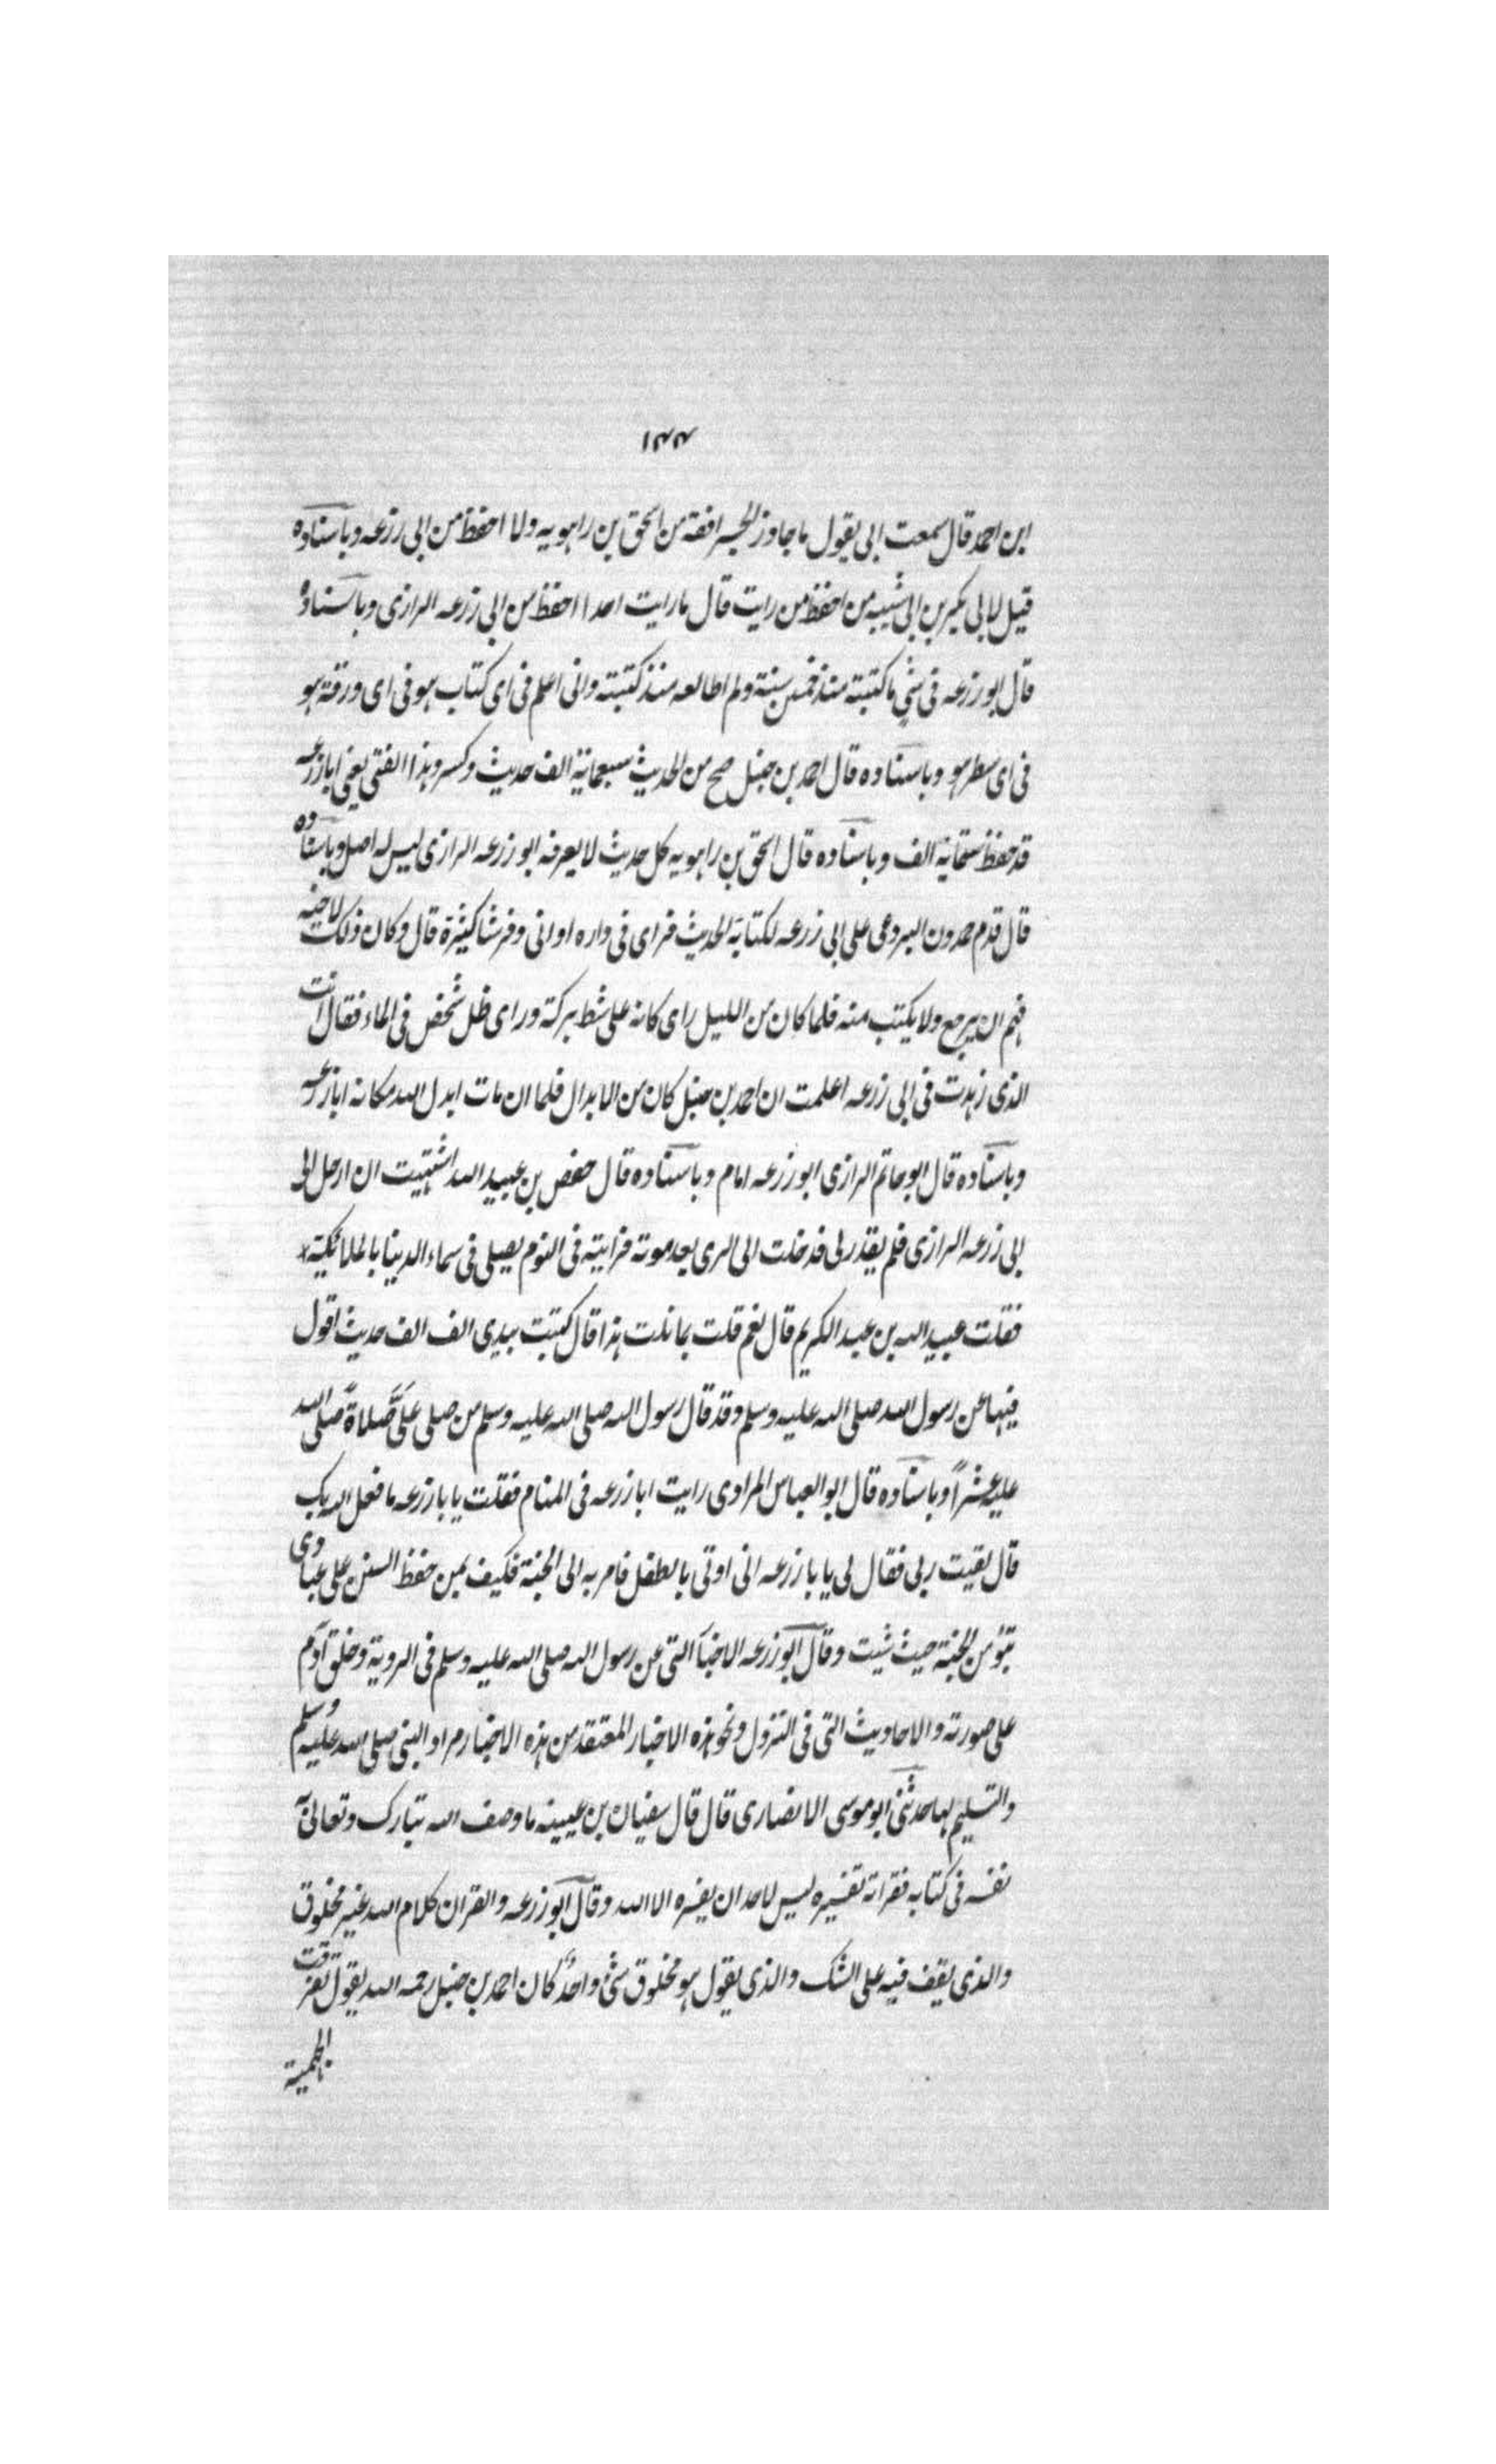 ١٣٣
ابن احمد قال سمعت ابى يقول ما جاوز الجسر افقه من اسحق بن راهويه ولا احفظ من ابى زرعه وباسناده
قيل لابى بكر بن ابى شيبه من احفظ من رايت قال ما رايت احدا احفظ من ابى زرعه الرازى وباسناده
قال ابو زرعه فى شئ ما كتبته منذ خمسين سنة ولم اطالعه منذ كتبته وانى اعلم فى اى كتاب هو فى اى ورقة هو
فى اى سطر هو وباسناده قال احمد بن حنبل صح من الحديث سبعمائة الف حديث وكسر وهذا الفتى يعنى ابا زرعه
قد حفظ ستمائة الف وباسناده قال اسحق بن راهويه كل حديث لا يعرفه ابو زرعه الرازى ليس له اصل وباسناده
قال قدم حمدون البردعى على ابى زرعه لكتابة الحديث فراى فى داره اوانى وفرشا كثيرة قال وكان ذلك لاخيه
فهم ان يرجع ولا يكتب منه فلما كان من الليل راى كانه على شط بركة وراى ظل شخص فى الماء فقال انت
الذى زهدت فى ابى زرعه اعلمت ان احمد بن حنبل كان من الابدال فلما ان مات ابدل الله مكانه ابا زرعه
وباسناده قال ابو حاتم الرازى ابو زرعه امام وباسناده قال حفص بن عبيد الله اشتهيت ان ارحل الى
ابى زرعه الرازى فلم يقدر لى فدخلت الى الرى بعد موته فرايته فى النوم يصلى فى سماء الدينا بالملائكية
فقلت عبيد الله بن عبد الكريم قال نعم قلت بما نلت هذا قال كتبت بيدى الف الف حديث اقول
فيها عن رسول الله صلى الله عليه وسلم وقد قال رسول الله صلى الله عليه وسلم من صلى عَلَيَّ صلاةً صلى الله
عليه عشراً وباسناده قال ابو العباس المرادى رايت ابا زرعه فى المنام فقلت يا با زرعه ما فعل الله بك
قال لقيت ربى فقال لى يا با زرعه انى اوتى بالطفل فامر به الى الجنة فكيف بمن حفظ السنن على عبادى
تبوُّ من الجنة حيث شيت وقال ابو زرعه الاخبار التى عن رسول الله صلى الله عليه وسلم فى الروية وخلق آدم
على صورته والاحاديث التى فى النزول ونحو هذه الاخبار المعتقد من هذه الاخبار مراد النبى صلى الله عليه وسلم
والتسليم بها حدثنى ابو موسى الانصارى قال قال سفيان بن عيينه ما وصف الله تبارك وتعالى به
نفسه فى كتابه فقراته تفسيره ليس لاحد ان يفسره الا الله وقال ابو زرعه والقران كلام الله غير مخلوق
والذى يقف فيه على الشك والذى يقول هو مخلوق شئ واحدٌ كان احمد بن حنبل رحمه الله يقول تفرقت
الجهمية